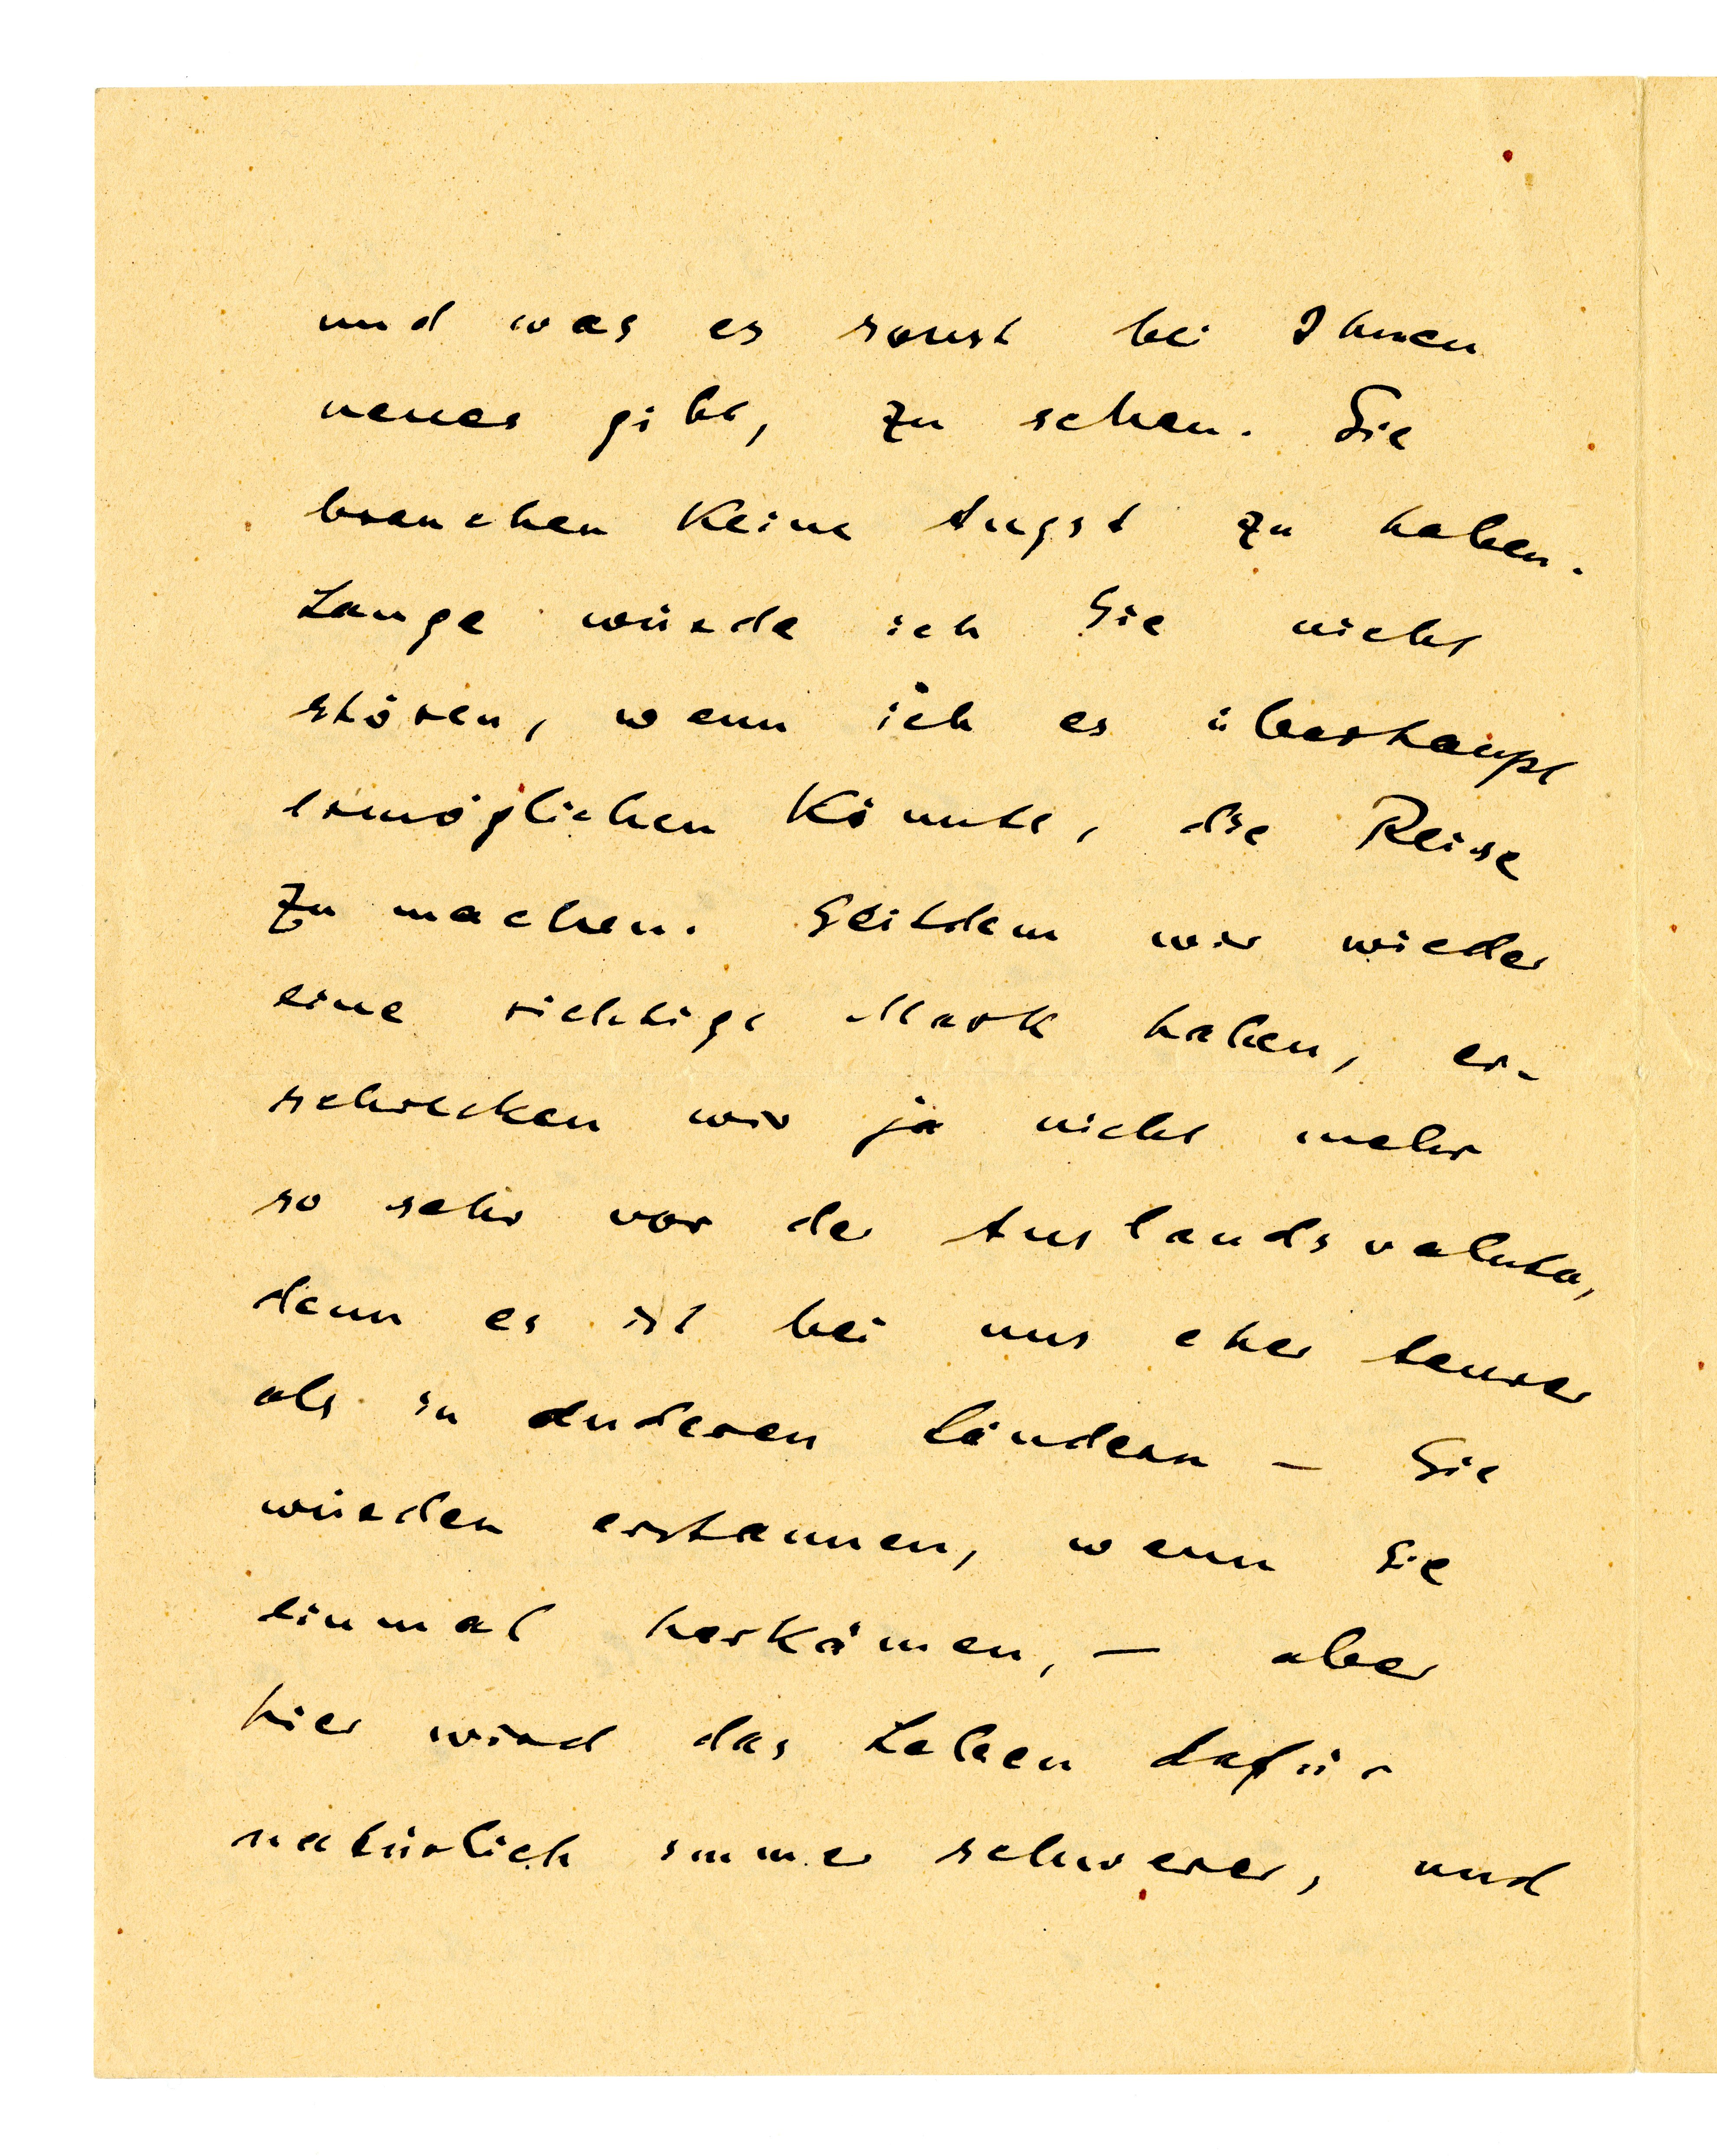 und was es sonst bei Ihnen
neues gibt, zu sehen. Sie
brauchen keine Angst zu haben.
Lange würde ich Sie nicht
stören, wenn ich es überhaupt
ermöglichen könnte, die Reise
zu machen. Seitdem wir wieder
eine richtige Mark haben, er-
schrecken wir ja nicht mehr
so sehr vor der Auslandsvaluta,
denn es ist bei uns eher teurer
als in anderen Ländern – Sie
würden erstaunen, wenn Sie
einmal herkämen, – aber
hier wird das Leben dafür
natürlich immer schwerer, und